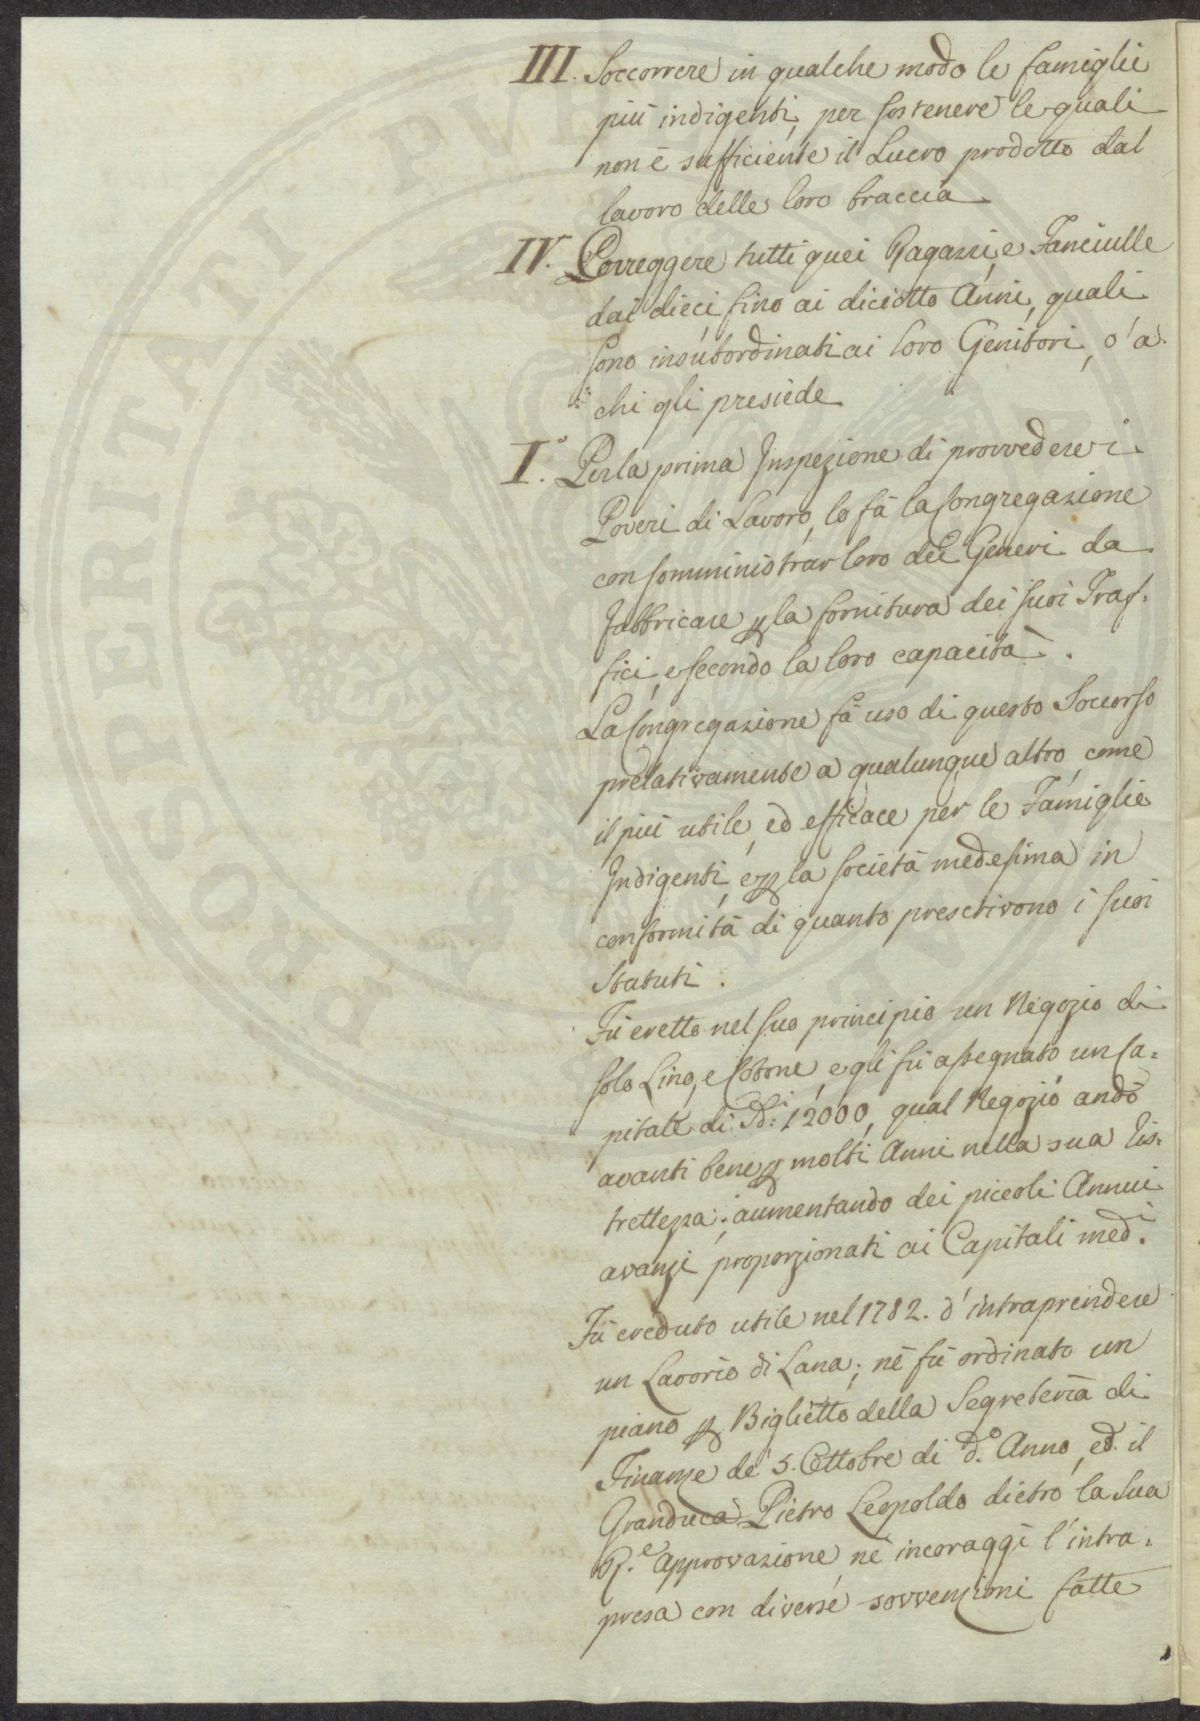 III. Soccorrere in qualche modo le famiglie
più indigenti, per sostenere le quali
non è sufficiente il Lucro prodotto dal
lavoro delle loro braccia
IV. Correggere tutti quei Ragazzi, e Fanciulle
dai dieci fino ai diciotto Anni, quali
sono insubordinati ai loro Genitori, o' a
chi gli presiede
I.° Per la prima Inspezione di provvedere i
Poveri di Lavoro, lo fà la Congregazione
con somministrar loro dei Generi da
fabbricare p la fornitura dei suoi Traf-
fici, e secondo la loro capacità.
La Congregazione fà uso di questo Soccorso
prelativamente a qualunque altro, come
il più utile, ed efficace per le Famiglie
Indigenti, e p la società medesima in
conformità di quanto prescrivono i suoi
Statuti.
Fù eretto nel suo principio un Negozio di
solo Lino, e Cotone, e gli fù assegnato un Ca-
pitale di 12000, qual Negozio andò
avanti bene p molti Anni nella sua Ris-
trettezza; aumentando dei piccoli Annui
avanzi proporzionati ai Capitali med.i
Fù creduto utile nel 1782. d'intraprendere
un Lavorìo di Lana; nè fù ordinato un
piano p Biglietto della Segreterìa di
Finanze de' 5. Ottobre di d.o Anno, ed il
Granduca Pietro Leopoldo dietro la sua
R.e Approvazione, nè incoraggì l'intra-
presa con diverse sovvenzioni fatte
PROSPERITATI PVB